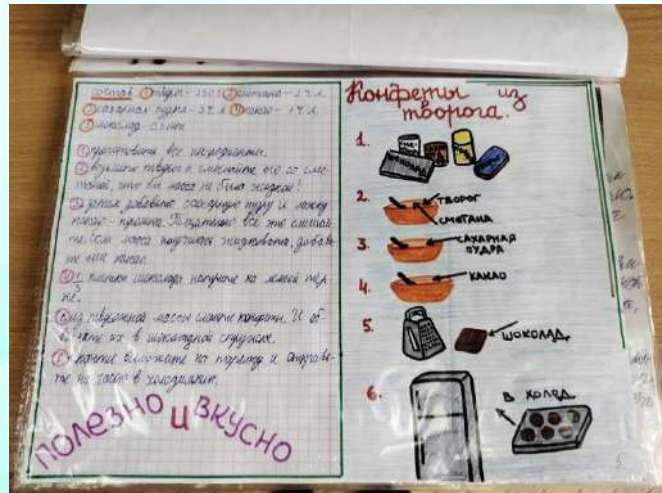 состав ①творог-250г②сметана-2ч.л
③сахарная пудра-3ч.л ④какао-1ч.л
⑤шоколад
①приготовить все ингредиенты.
②возьмите творог и смешайте его со сме-
таной, что бы масса не была жидкой!
③затем добавьте сахарную пудру и
какао Тщательно все это смешай-
те. Если масса получится жидковата, добавь-
те еще какао.
плитки шоколада натрите на мелкой тёр-
ке.
из творожной массы слепите конфеты. И об-
валяйте их в шоколадной стружке.
конфеты выложите на тарелку и отправь-
те на часов в холодильник.
полезно и вкусно
Конфеты из
творога.
1.
ШОКОЛАД
2. ТВОРОГ
СМЕТАНА
3. САХАРНАЯ
ПУДРА
4. КАКАО
5. ШОКОЛАД
6. В ХОЛОД